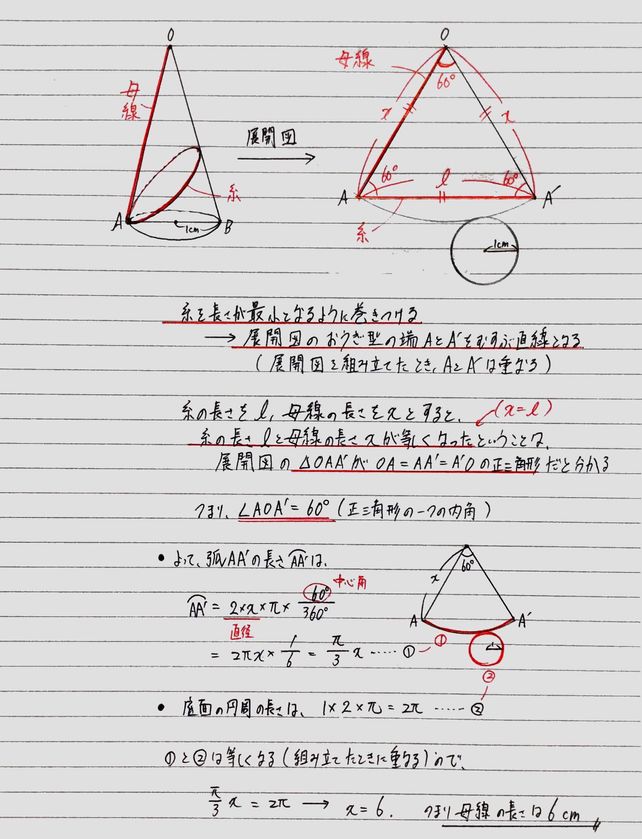 O
母線
展開図
糸
A
1cm
B
O
母線
60°
x
x
60°
l
60°
A
A′
糸
1cm
糸を長さが最小となるように巻きつける
→ 展開図のおうぎ型の端AとA′をむすぶ直線となる
(展開図を組み立てたとき、AとA′は重なる)
糸の長さをl, 母線の長さをxとすると、
(x=l)
糸の長さlと母線の長さxが等しくなったということは、
展開図の△OAA′がOA=AA′=A′Oの正三角形だと分かる
つまり、∠AOA′=60°(正三角形の一つの内角)
• よって、弧AA′の長さ⌒AA′は、
⌒AA′ = 2×x×π× 60°/360° 中心角
直径
= 2πx× 1/6 = π/3 x ‥‥‥ ①
60°
x
A
A′
①
②
• 底面の円周の長さは、1×2×π=2π ‥‥‥ ②
①と②は等しくなる(組み立てたときに重なる)ので、
π/3 x = 2π → x=6. つまり母線の長さは6cm